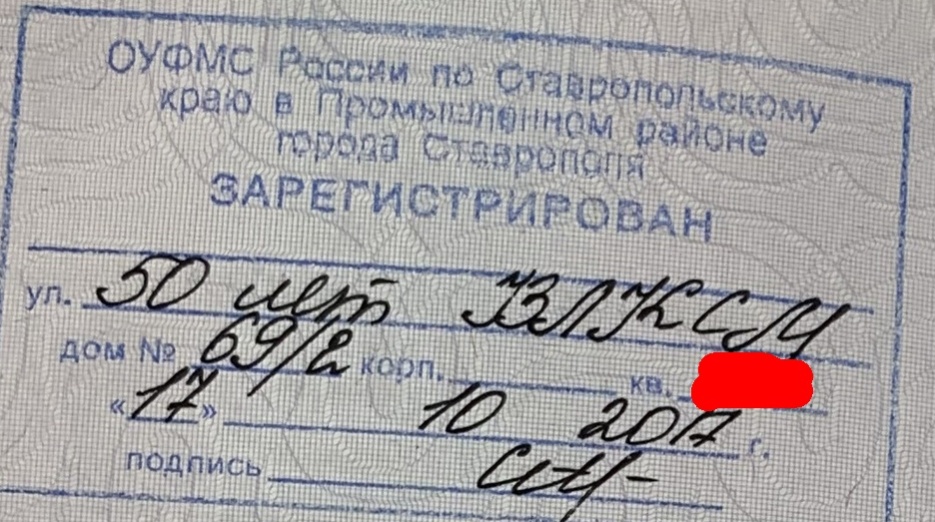 ОУФМС России по Ставропольскому
краю в Промышленном районе
города Ставрополя
ЗАРЕГИСТРИРОВАН
ул. 50 лет ВЛКСМ
дом № 69/2 корп. кв.
«17» 10 2017 г.
подпись